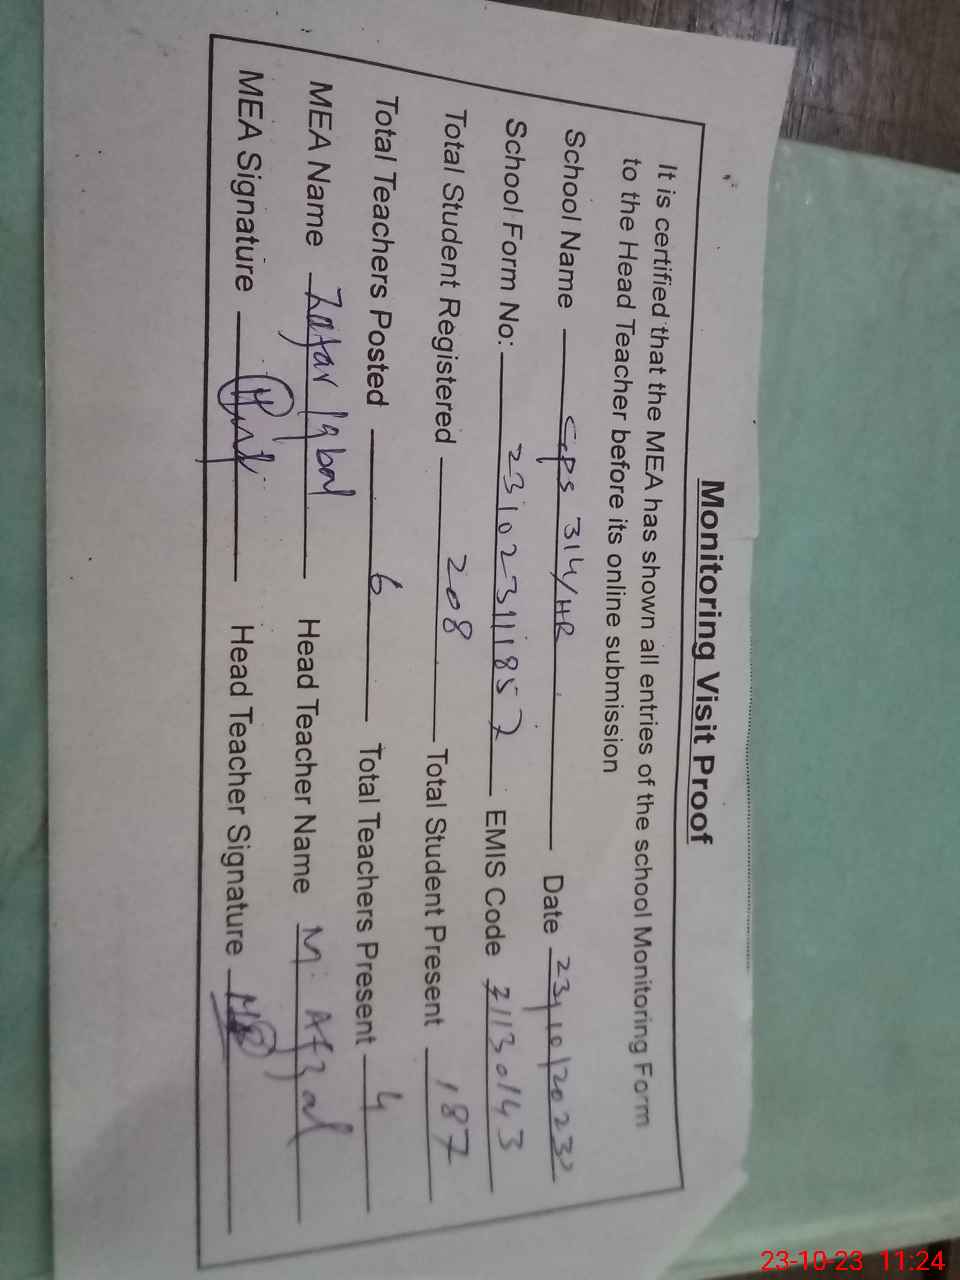 Monitoring Visit Proof
It is certified that the MEA has shown all entries of the school Monitoring Form
to the Head Teacher before its online submission
School Name GPS 314/HR Date 23/10/2023
School Form No: 231023111857 EMIS Code 31130143
Total Student Registered 208 Total Student Present 187
Total Teachers Posted 6 Total Teachers Present 4
MEA Name Zafar Iqbal Head Teacher Name M. Afzal
MEA Signature Head Teacher Signature
23-10-23 11:24